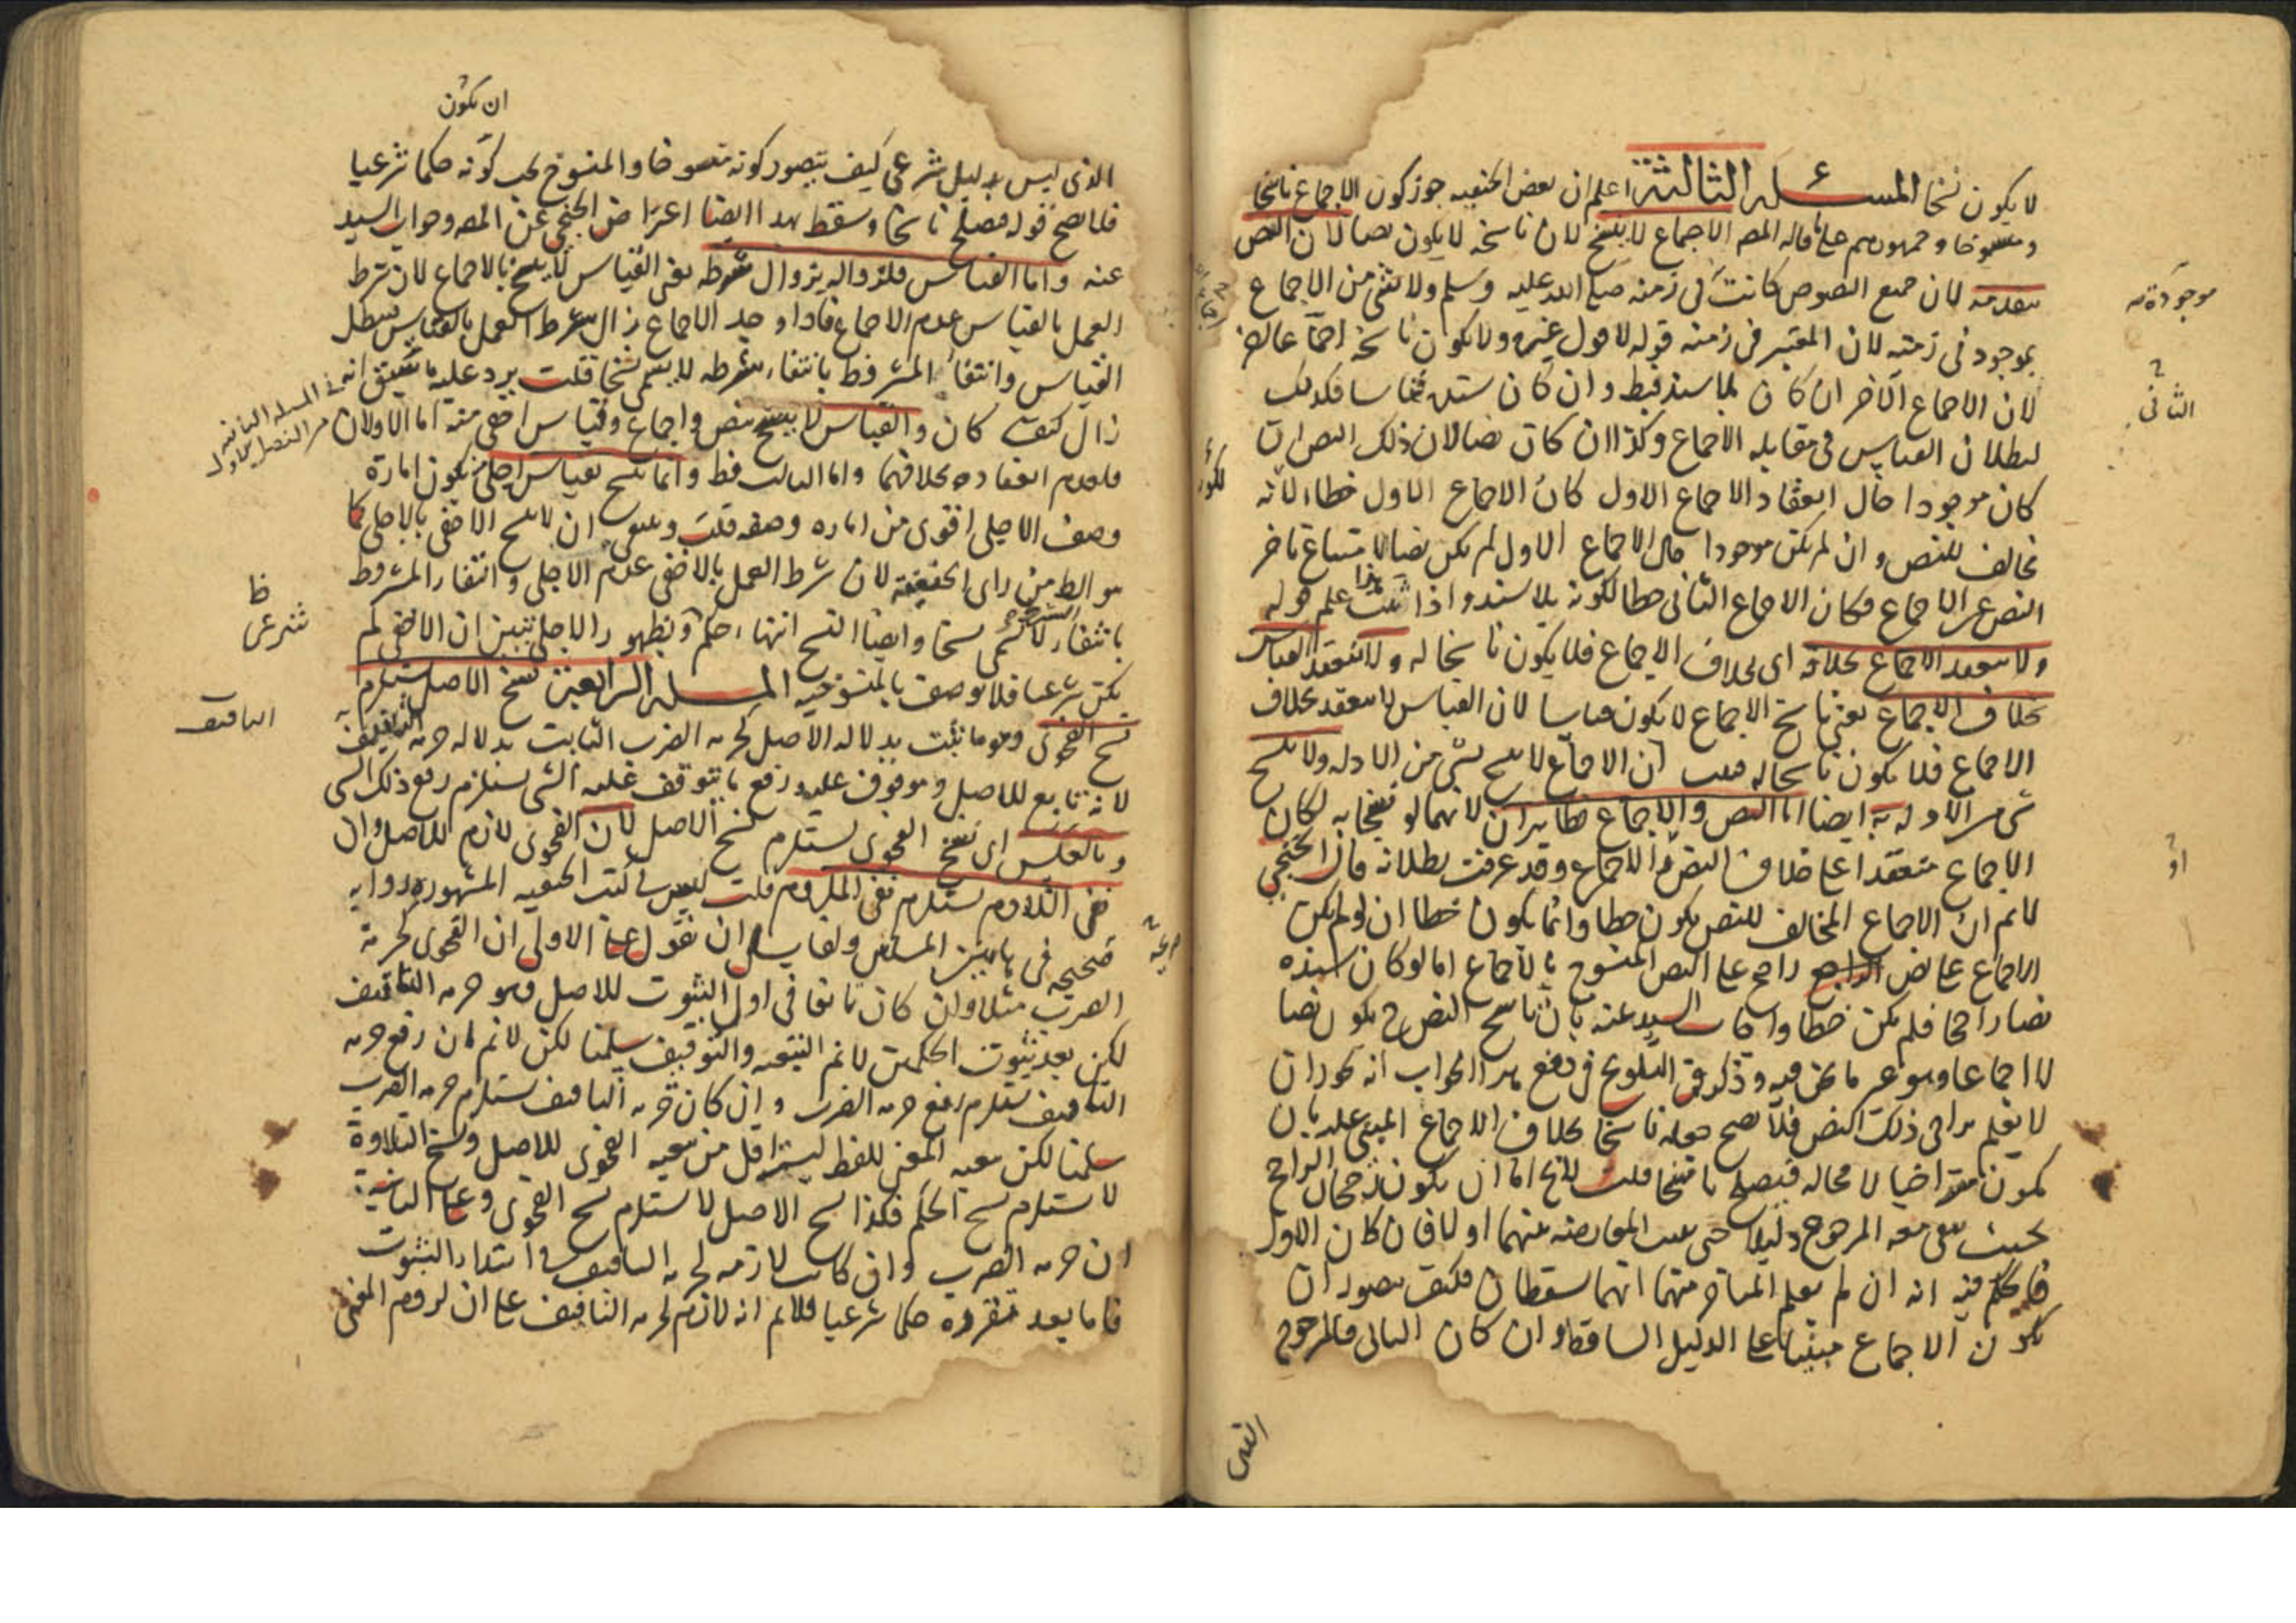 لا يكون نسخا المسئلة الثالثة اعلم ان بعض الحنفيه جوز كون الاجماع ناسخا
ومنسوخا وجمهورهم على ما قاله المصـ الاجماع لا ينسخ لان ناسخه لا يكون نصا لان النص
متقدمه لان جميع النصوص كانت في زمنه صلى الله عليه وسلم ولا شئ من الاجماع
بموجود في زمنه لان المعتبر في زمنه قوله لا قول غيره ولا يكون ناسخه اجماعا لخر
لان الاجماع الآخر ان كان بلا سند فبط وان كان سنده قياسا فكذلك
لبطلان القياس في مقابله الاجماع وكذا ان كان نصا لان ذلك النص ان
كان موجودا حال انعقاد الاجماع الاول كان الاجماع الاول خطا لانه
مخالف للنص وان لم يكن موجودا حال الاجماع الاول لم يكن نصا لامتناع تاخر
النص عن الاجماع فكان الاجماع الثانى خطا لكونه بلا سند واذا ثبت هذا علم قوله
ولا ينعقد الاجماع بخلافه اى بخلاف الاجماع فلا يكون ناسخا له ولا ينعقد القياس
بخلاف الاجماع يعنى ناسخ الاجماع لا يكون قياسا لان القياس لا ينعقد بخلاف
الاجماع فلا يكون ناسخا له فثبت ان الاجماع لا ينسخ بشى من الادله ولا ينسخ
شى من الادله به ايضا اما النص والاجماع فظاهران لانهما لو نسخا به لكان
الاجماع منعقدا على خلاف النص والاجماع وقد عرفت بطلانه قال الخنجي
لانم ان الاجماع المخالف للنص يكون خطا وانما يكون خطا ان لو لم يكن
الاجماع على نص راجح على النص المنسوخ بالاجماع اما لو كان سنده
نصا راجحا فلم يكن خطا واجاب السيد عنه بان ناسخ النص ح يكون نصا
لا اجماعا وهو غير ما نحن فيه وذكر في التلويح في دفع هذا الجواب انه يجوز ان
لا يعلم تراخى ذلك النص فلا يصح جعله ناسخا بخلاف الاجماع المبنى عليه بان
يكون متراخيا لا محاله فيصلح ناسخا قلت لانخ اما ان يكون رجحان الراجح
بحيث يبقى معه المرجوح دليلا حتى يثبت المعارضه بينهما او لا فان كان الاول
فالحكم فيه انه ان لم يعلم المتاخر منهما انهما يسقطان فكيف يصور ان
يكون الاجماع مبنيا على الدليل الساقط وان كان الثانى فالمرجوح
موجودة
الثانى
او
الذى ليس بدليل شرعى كيف يتصور كونه منسوخا والمنسوخ يجب كونه حكما شرعيا
ان يكون
فلا يصح قوله فيصلح ناسخا وسقط بهذا ايضا اعتراض الخنجي عن المصـ وجواب السيد
عنه واما القياس فلزواله بزوال شرطه يعنى القياس لا ينسخ بالاجماع لان شرط
العمل بالقياس عدم الاجماع فاذا وجد الاجماع زال شرط العمل بالقياس فبطل
القياس وانتفاء المشروط بانتفاء شرطه لا يسمى نسخا قلت يرد عليه
زال كيف كان والقياس لا ينسخ بنص واجماع وقياس اخفى منه اما الاولان
فلعدم انعقاده بخلافهما واما الثالث فبط وانما ينسخ بقياس اجلى من كون امارة
وصف الاجلى اقوى من اماره وصفه قلت وينبغى ان لا ينسخ الاخفى بالاجلى كما
هو الظ من راى الحنفية لان شرط العمل بالاخفى عدم الاجلى وانتفاء المشروط
بانتفاء الشرط لا يسمى نسخا وايضا النسخ انتهاء حكم وبظهور الاجلى تبين ان الاخفى لم
يكن شرعيا فلا يوصف بالمنسوخيه المسئلة الرابعة نسخ الاصل يستلزم
نسخ الفحوى وهو ما يثبت بدلاله الاصل كحرمه الضرب الثابت بدلاله حرمه التافيف
لانه تابع للاصل وموقوف عليه ورفع ما يتوقف عليه الشى يستلزم رفع ذلك الشى
وبالعكس اى نسخ الفحوى يستلزم نسخ الاصل لان الفحوى لازم للاصل وان
نفى اللازم يستلزم نفى الملزوم قلت ليس فى كتب الحنفيه المشهوره روايه
صحيحه فى هاتين المسئلتين ولقايل ان نقول على الاولى ان الفحوى كحرمة
الضرب مثلا وان كان تابعا فى اول الثبوت للاصل وهو حرمه التافيف
لكن بعد ثبوت الحكمين لانم التبعيه والتوقيف سلمنا لكن لانم ان رفع حرمه
التافيف يستلزم رفع حرمه الضرب وان كان حرمه التافيف يستلزم حرمه الضرب
سلمنا لكن تبعيه المعنى للفظ ليست اقل من تبعيه الفحوى للاصل ونسخ التلاوة
لا يستلزم نسخ الحكم فكذا نسخ الاصل لا يستلزم نسخ الفحوى وعلى الثانية
ان حرمه الضرب وان كانت لازمه لحرمه التافيف فى ابتداء الثبوت
فاما بعد تقرره حكما شرعيا فلانم انه لازم لحرمه التافيف على ان لزوم المعنى
فى المسئله الثانيه
من الفصل الاول
ظ
شرعى
التافيف